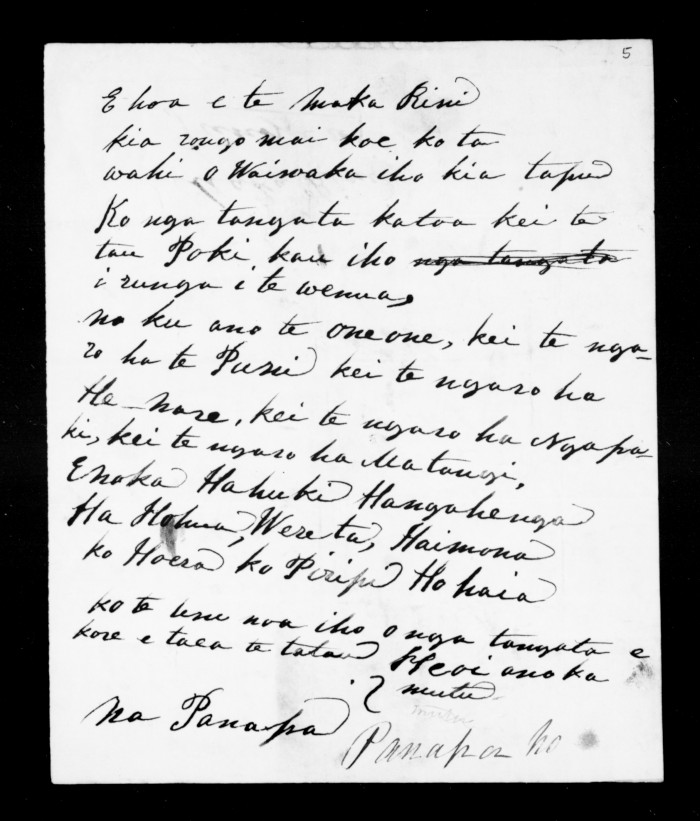 5
E hoa e te Maka Rini
kia rongo mai koe ko ta
wahi o Waiwaka iho kia tapu
Ko nga tangata katoa kei te
tau Poki kau iho nga tangata
i runga i te wenua,
na ku ano te oneone, kei te nga-
ro ha te Puni kei te ngaro ha
He-nare, kei te ngaro ha Ngapa-
ki, kei te ngaro ha Matangi,
Enoka Hahuki Hangahenga
Ha Hohua, Wereta, Haimona
ko Hoera ko Piripi Hohaia
ko te uru noa iho o nga tangata e
kore e taea te tatau Heoi ano ka
mutu
mutu
na Panapa
Panapa ho